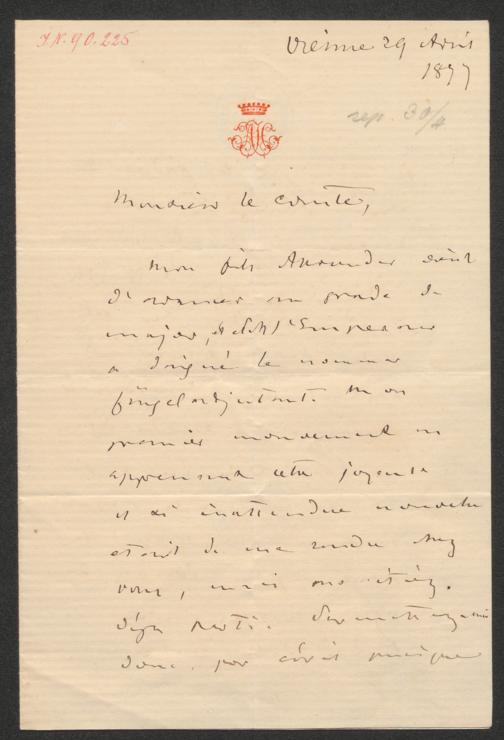 I.N. 90.225
Vienne 29 Avril
1897
rep. 30/4
Monsieur le comte,
Mon fils Alexandre vient
d'avancer au grade de
major, et S.M. l'Empereur
a daigné le nommer
flügeladjutant. Mon
premier mouvement en
apprenant cette joyeuse
et si inattendue nouvelle
etait de me rendre chez
vous, mais vous étiez
déja parti. Permettez-moi
donc, par écrit puisque